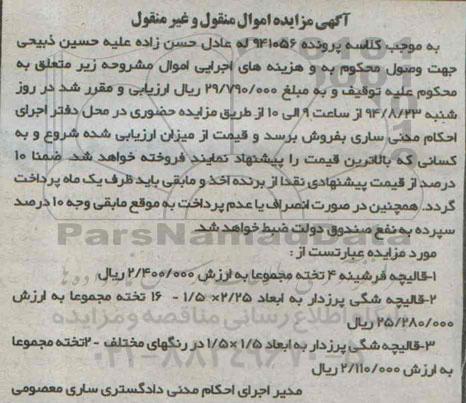 آگهی مزایده اموال منقول و غیر منقول
به موجب کلاسه پرونده ۹۴۱۰۵۶ له عادل حسن زاده علیه حسین ذبیحی
جهت وصول محکوم به و هزینه های اجرایی اموال مشروحه زیر متعلق به
محکوم علیه توقیف و به مبلغ ۲۹/۷۹۰/۰۰۰ ریال ارزیابی و مقرر شد در روز
شنبه ۹۴/۸/۲۳ از ساعت ۹ الی ۱۰ از طریق مزایده حضوری در محل دفتر اجرای
احکام مدنی ساری بفروش برسد و قیمت از میزان ارزیابی شده شروع و به
کسانی که بالاترین قیمت را پیشنهاد نمایند فروخته خواهد شد. ضمنا ۱۰
درصد از قیمت پیشنهادی نقدا از برنده اخذ و مابقی باید ظرف یک ماه پرداخت
گردد. همچنین در صورت انصراف یا عدم پرداخت به موقع مابقی وجه ۱۰ درصد
سپرده به نفع صندوق دولت ضبط خواهد شد.
مورد مزایده عبارتست از :
۱-قالیچه فرشینه ۴ تخته مجموعا به ارزش ۲/۴۰۰/۰۰۰ ریال
۲-قالیچه شگی پرزدار به ابعاد ۲/۲۵× ۱/۵ - ۱۶ تخته مجموعا به ارزش
۲۵/۲۸۰/۰۰۰ ریال
۳-قالیچه شگی پرزدار به ابعاد ۱/۵ ×۱/۵ در رنگهای مختلف - ۲تخته مجموعا
به ارزش ۲/۱۱۰/۰۰۰ ریال
مدیر اجرای احکام مدنی دادگستری ساری معصومی
ParsNamadData
پایگاه اطلاع رسانی مناقصه و مزایده
۰۲۱-۸۸۳۴۹۶۷۰-۵